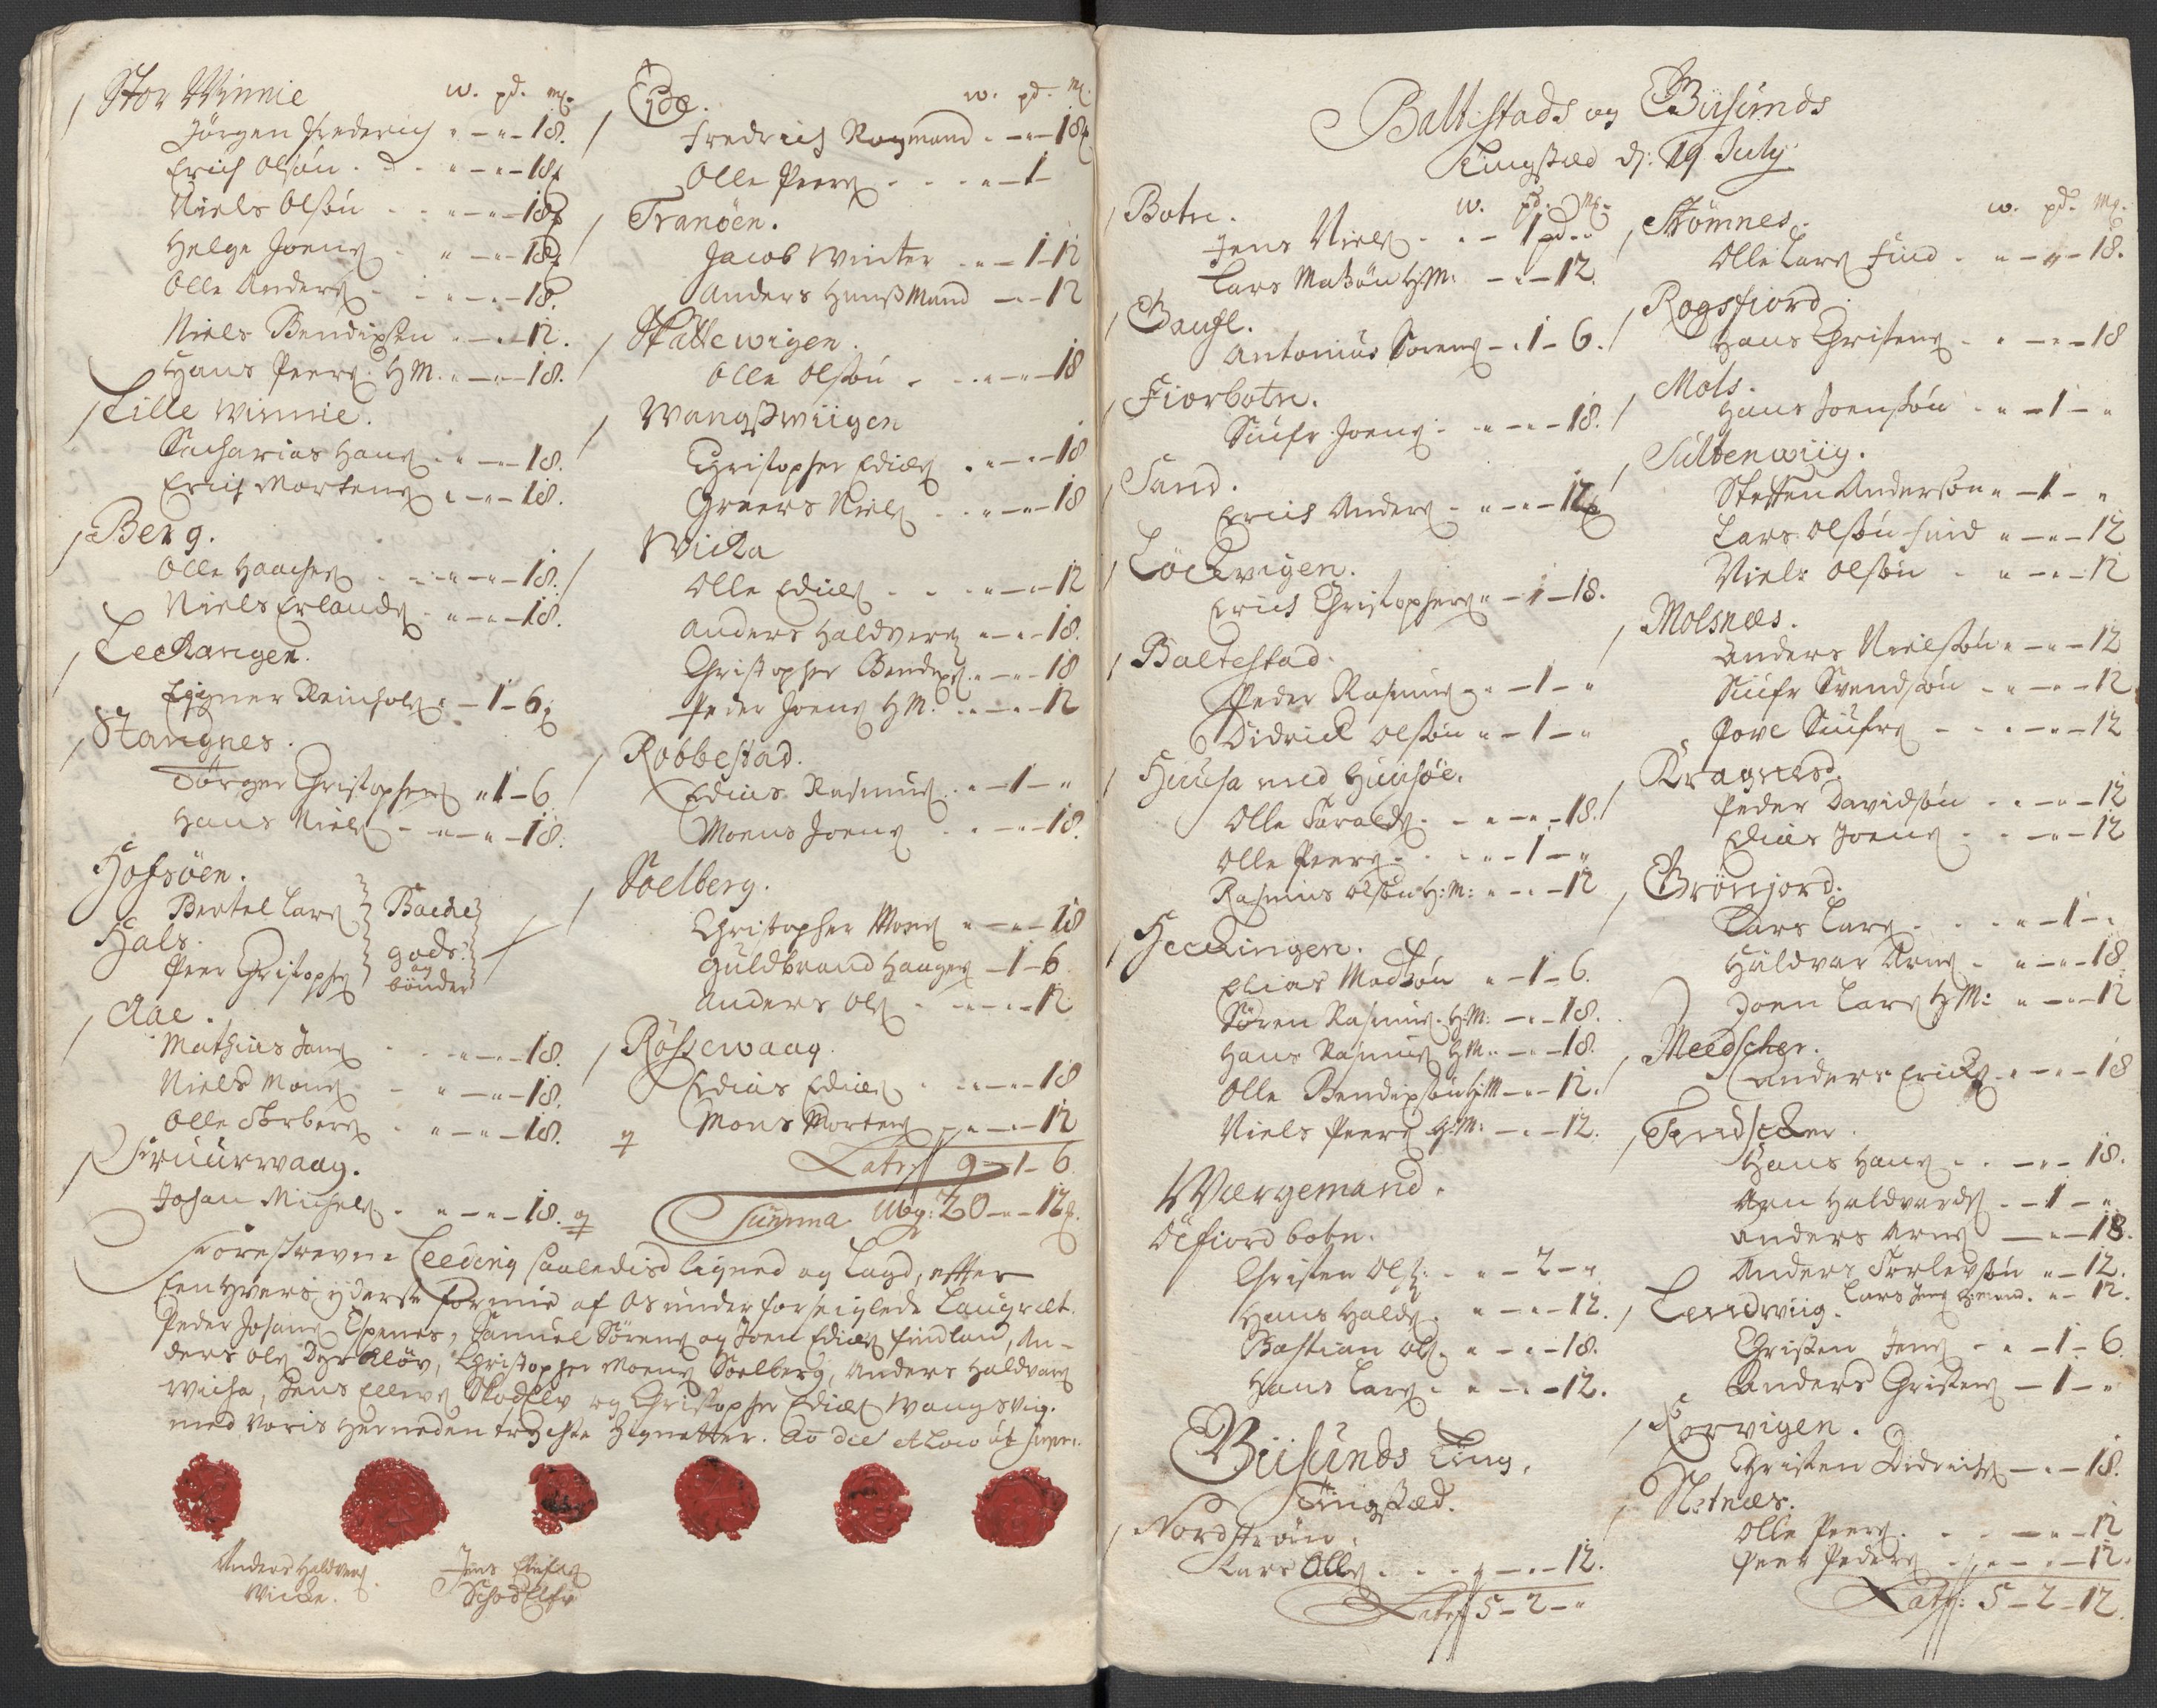 Stor Winnie w. pd. mk.
Jörgen Frederich " - " - 18.
Erich Olsön . . " - " - 18
Niels Olsön . . " - " - 18
Helge Joens . " - " - 18
Olle Anders . . " - " - 18.
Niels Bendixsen . " - " - 12.
Hans Peers. H M. " - " - 18.
Lille Winnie.
Sacharias Hans . " - " - 18.
Erich Mortens . " - " - 18.
Berg.
Olle Haaches . . " - " - 18.
Niels Erlands . " - " - 18.
Leckangen.
Eigner Reinhols " - 1 - 6
Stangnes.
Törger Christophers " 1 - 6
Hans Niels . " - " - 18.
Hofsöen.
Bertel Lars Backe
Hals. gods.
Peer Christophs og bönder
Aae.
Mathias Jons . . " - " - 18.
Niels Mons . . " - " - 18.
Olle Torbers . " - " - 18.
Fruurwaag.
Johan Michels . " - " - 18.
Eide. w. pd. mk.
Fredrich Rogmand . " - " - 18
Olle Peers . . . " - 1 -
Tranöen.
Jacob Winter . " - 1 - 12
Anders Hunssmand - " - 12
Skattewigen.
Olle Olsön . . " - " - 18
Wangsswiigen
Christopher Edies . " - " - 18
Greers Niels . . " - " - 18
Wicka
Olle Edies . . . " - " - 12
Anders Haldvers " - " - 18.
Christopher Bendixs. " - " - 18
Peder Joens H M. " - " - 12
Robbestad.
Edias Rasmus . " - 1 - "
Moens Joens . " - " - 18.
Soelberg.
Christopher Mons " - " - 18
Guldbrand Haagens - 1 - 6
Anders Ols . " - " - 12
Rössewaag.
Edias Edies . " - " - 18
Mons Mortens " - " - 12
Lats 9 - 1 - 6
Summa Wog: 20 - " - 12
Forestrevne Leeding saaledis ligned og Lagd, efter
Een hvers yderste formue af os underforseiglede Laugret.
Peder Johans Espenes, Samuel Sörens og Joen Edies Findland, An-
ders Ols Dyrklöv, Christopher Moens Soelberg, Anders Haldvers
Wicha, Jens Ellevs Skodelv og Christopher Edies Wangsvig.
med voris herneden trÿckte Signetter. Ao die et loco ut supra.
Anders Haldvers Jens
Wicke. Schodelfv
Baltestads og Giisunds
Tingsted d: 19 July
Botn. w. pd. mk.
Jens Niels . . - 1 pd. "
Lars Matsön H:M: - " - 12.
Gaufl.
Antonius Sorens - " 1 - 6.
Fiorbotn.
Siufr Joens . " - " - 18.
Sand.
Erich Anders . " - " - 12
Löckvigen.
Erich Christophers " - 1 - 18.
Baltestad.
Peder Rasmus . " - 1 - "
Didrick Olsön " - 1 - "
Huusa med Huusöe.
Olle Taralds . " - " - 18.
Olle Peers . . " - 1 - "
Rasmus Olsön H:M: " - " - 12
Heckingen.
Elias Madsön " - 1 - 6.
Sören Rasmus. H:M: - " - 18.
Hans Rasmus H M. " - " - 18.
Olle Bendixsön H:M - " - 12.
Niels Peers H:M: - " - 12.
Wærgemand.
Öefiord botn.
Christen Ols: . " - 2 - "
Hans Halds . " - " - 12.
Bastian Ols. " - " - 18.
Hans Lars . " - " - 12.
Giisunds Ting,
Tingsted.
Nordström.
Lars Olls . . " - " - 12.
Lats 5 - 2 - "
Strömnes. w. pd. mk.
Olle Lars Find . " - " - 18.
Rogsfiord.
Hans Christens . " - " - 18
Mols.
Hans Joensön . " - 1 - "
Sultenwiig.
Steffen Andersön " - 1 - "
Lars Olsön Find " - " - 12
Niels Olsön . " - " - 12
Molsnæs.
Anders Nielsön " - " - 12
Siufr Svendsön . " - " - 12
Pove Siufrs . . " - " - 12
Kragnesd.
Peder Davidsön . " - " - 12
Edias Joens . " - " - 12
Grönjord.
Lars Lars . . . " - 1 - "
Haldvar Arns . " - " - 18
Joen Lars H M: " - " - 12
Meedscher.
Anders Ericks . " - " - 18
Tendscher.
Hans Hans . . " - " - 18.
Arn Haldvards . " - 1 - "
Anders Arns - " - 18.
Anders Torlevsön " - 12.
Lars Jens " - 12.
Lendwiig.
Christen Jens . " - 1 - 6.
Anders Christens - 1 - "
Korvigen.
Christen Didrichs - " - 18.
Sletnæs.
Olle Peers . . " - " - 12
Peer Peders . " - " - 12.
Lats: 5 - 2 - 12.